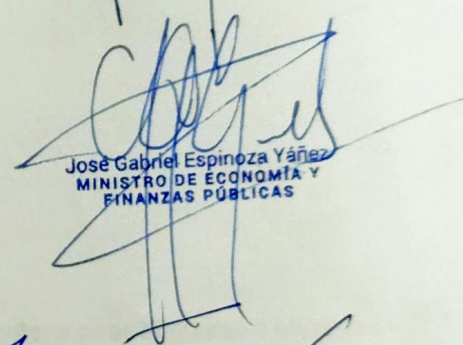 José Gabriel Espinoza Yáñez
MINISTRO DE ECONOMÍA Y
FINANZAS PÚBLICAS